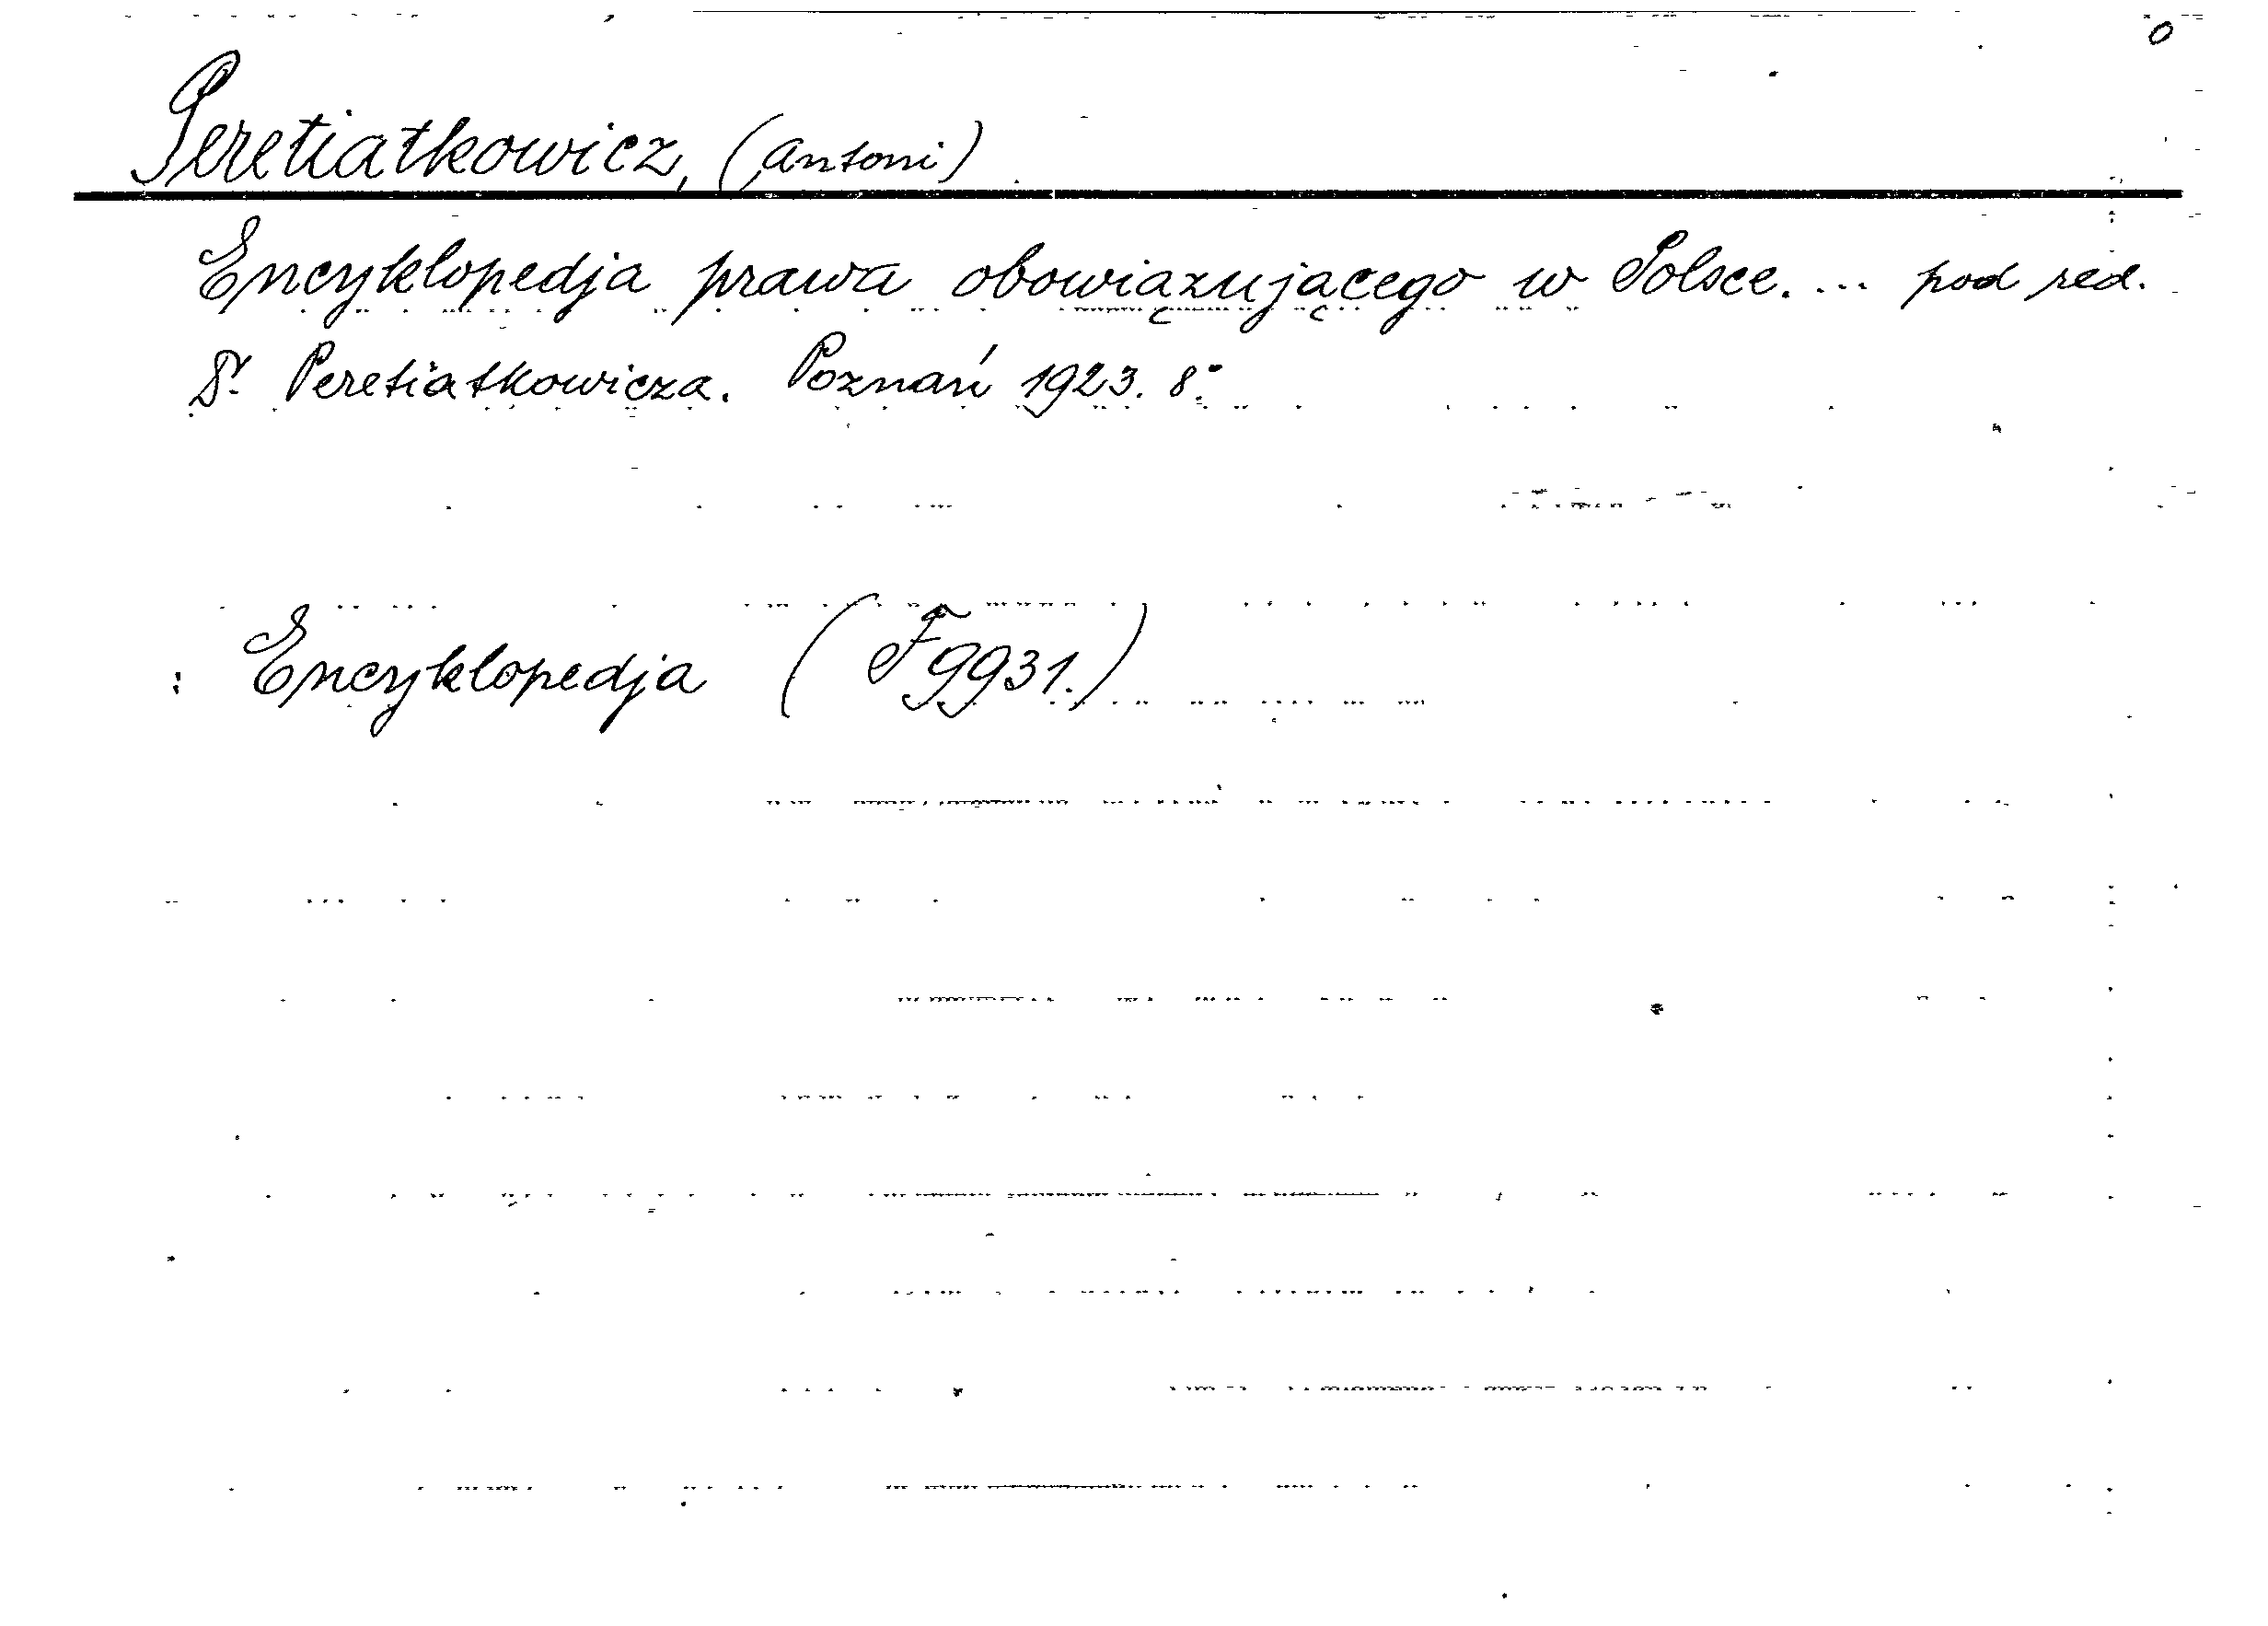 Peretiatkowicz, (Antoni)
Encyklopedja prawa obowiązującego w Polsce. ... pod red.
Dr. Peretiatkowicza. Poznań 1923. 8°.
: Encyklopedja (F 9931.)